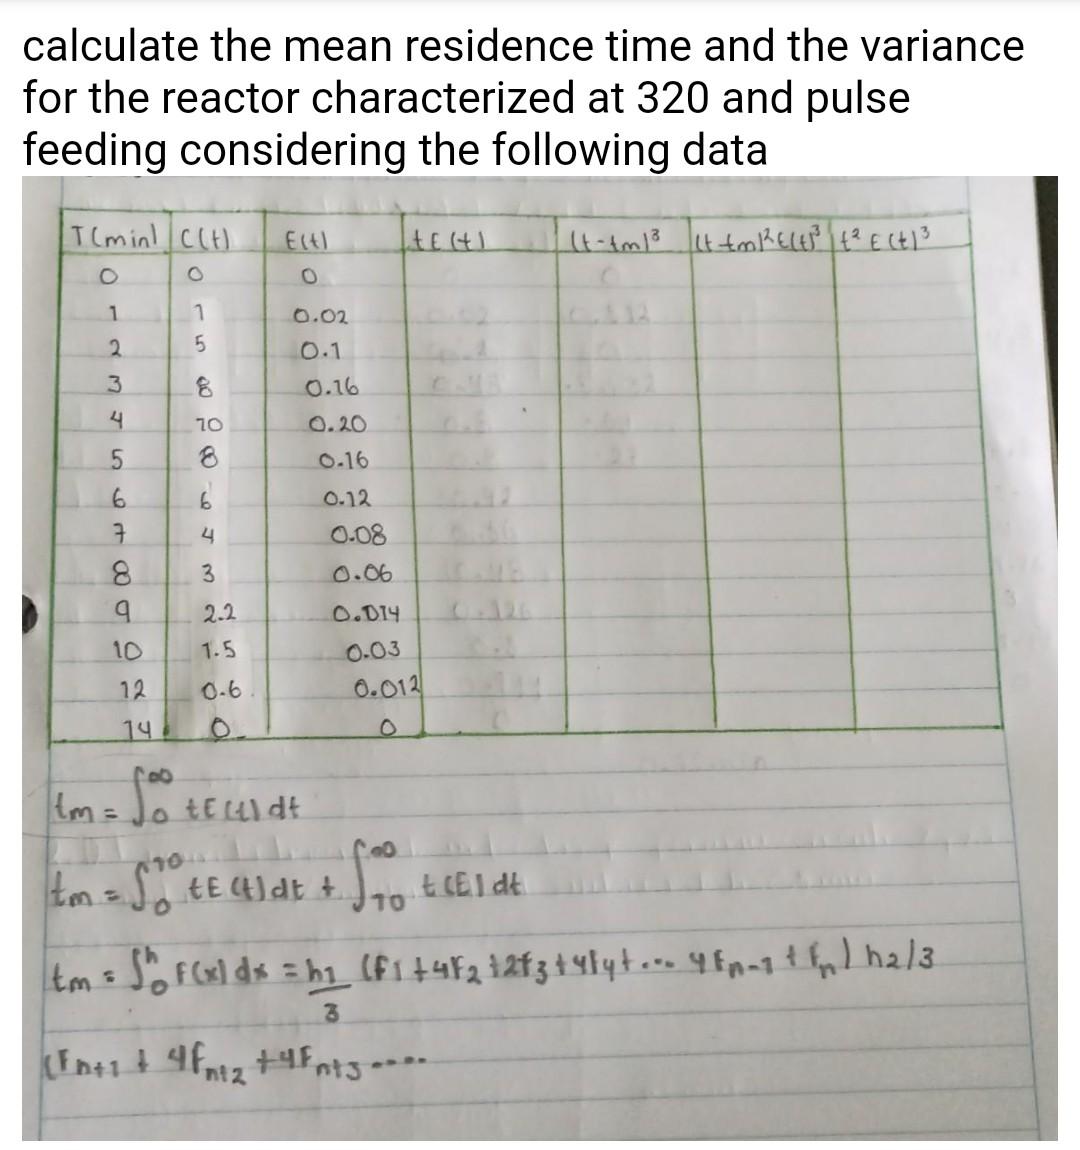 calculate the mean residence time and the variance
for the reactor characterized at 320 and pulse
feeding considering the following data
T(min) C(t) E(t) tE(t) (t-tm)³ (t-tm)²E(t)³ t²E(t)³
0 0 0
1 1 0.02
2 5 0.1
3 8 0.16
4 10 0.20
5 8 0.16
6 6 0.12
7 4 0.08
8 3 0.06
9 2.2 0.014
10 1.5 0.03
12 0.6 0.012
14 0 0
tm = ∫₀^∞ tE(t) dt
tm = ∫₀^10 tE(t) dt + ∫₁₀^∞ t(E) dt
tm = ∫₀^h F(x) dx = h1/3 (f1 + 4F2 + 2f3 + 4fy + ... 4Fn-1 + Fn) h2/3
(Fn+1 + 4fn+2 + 4Fn+3 .....